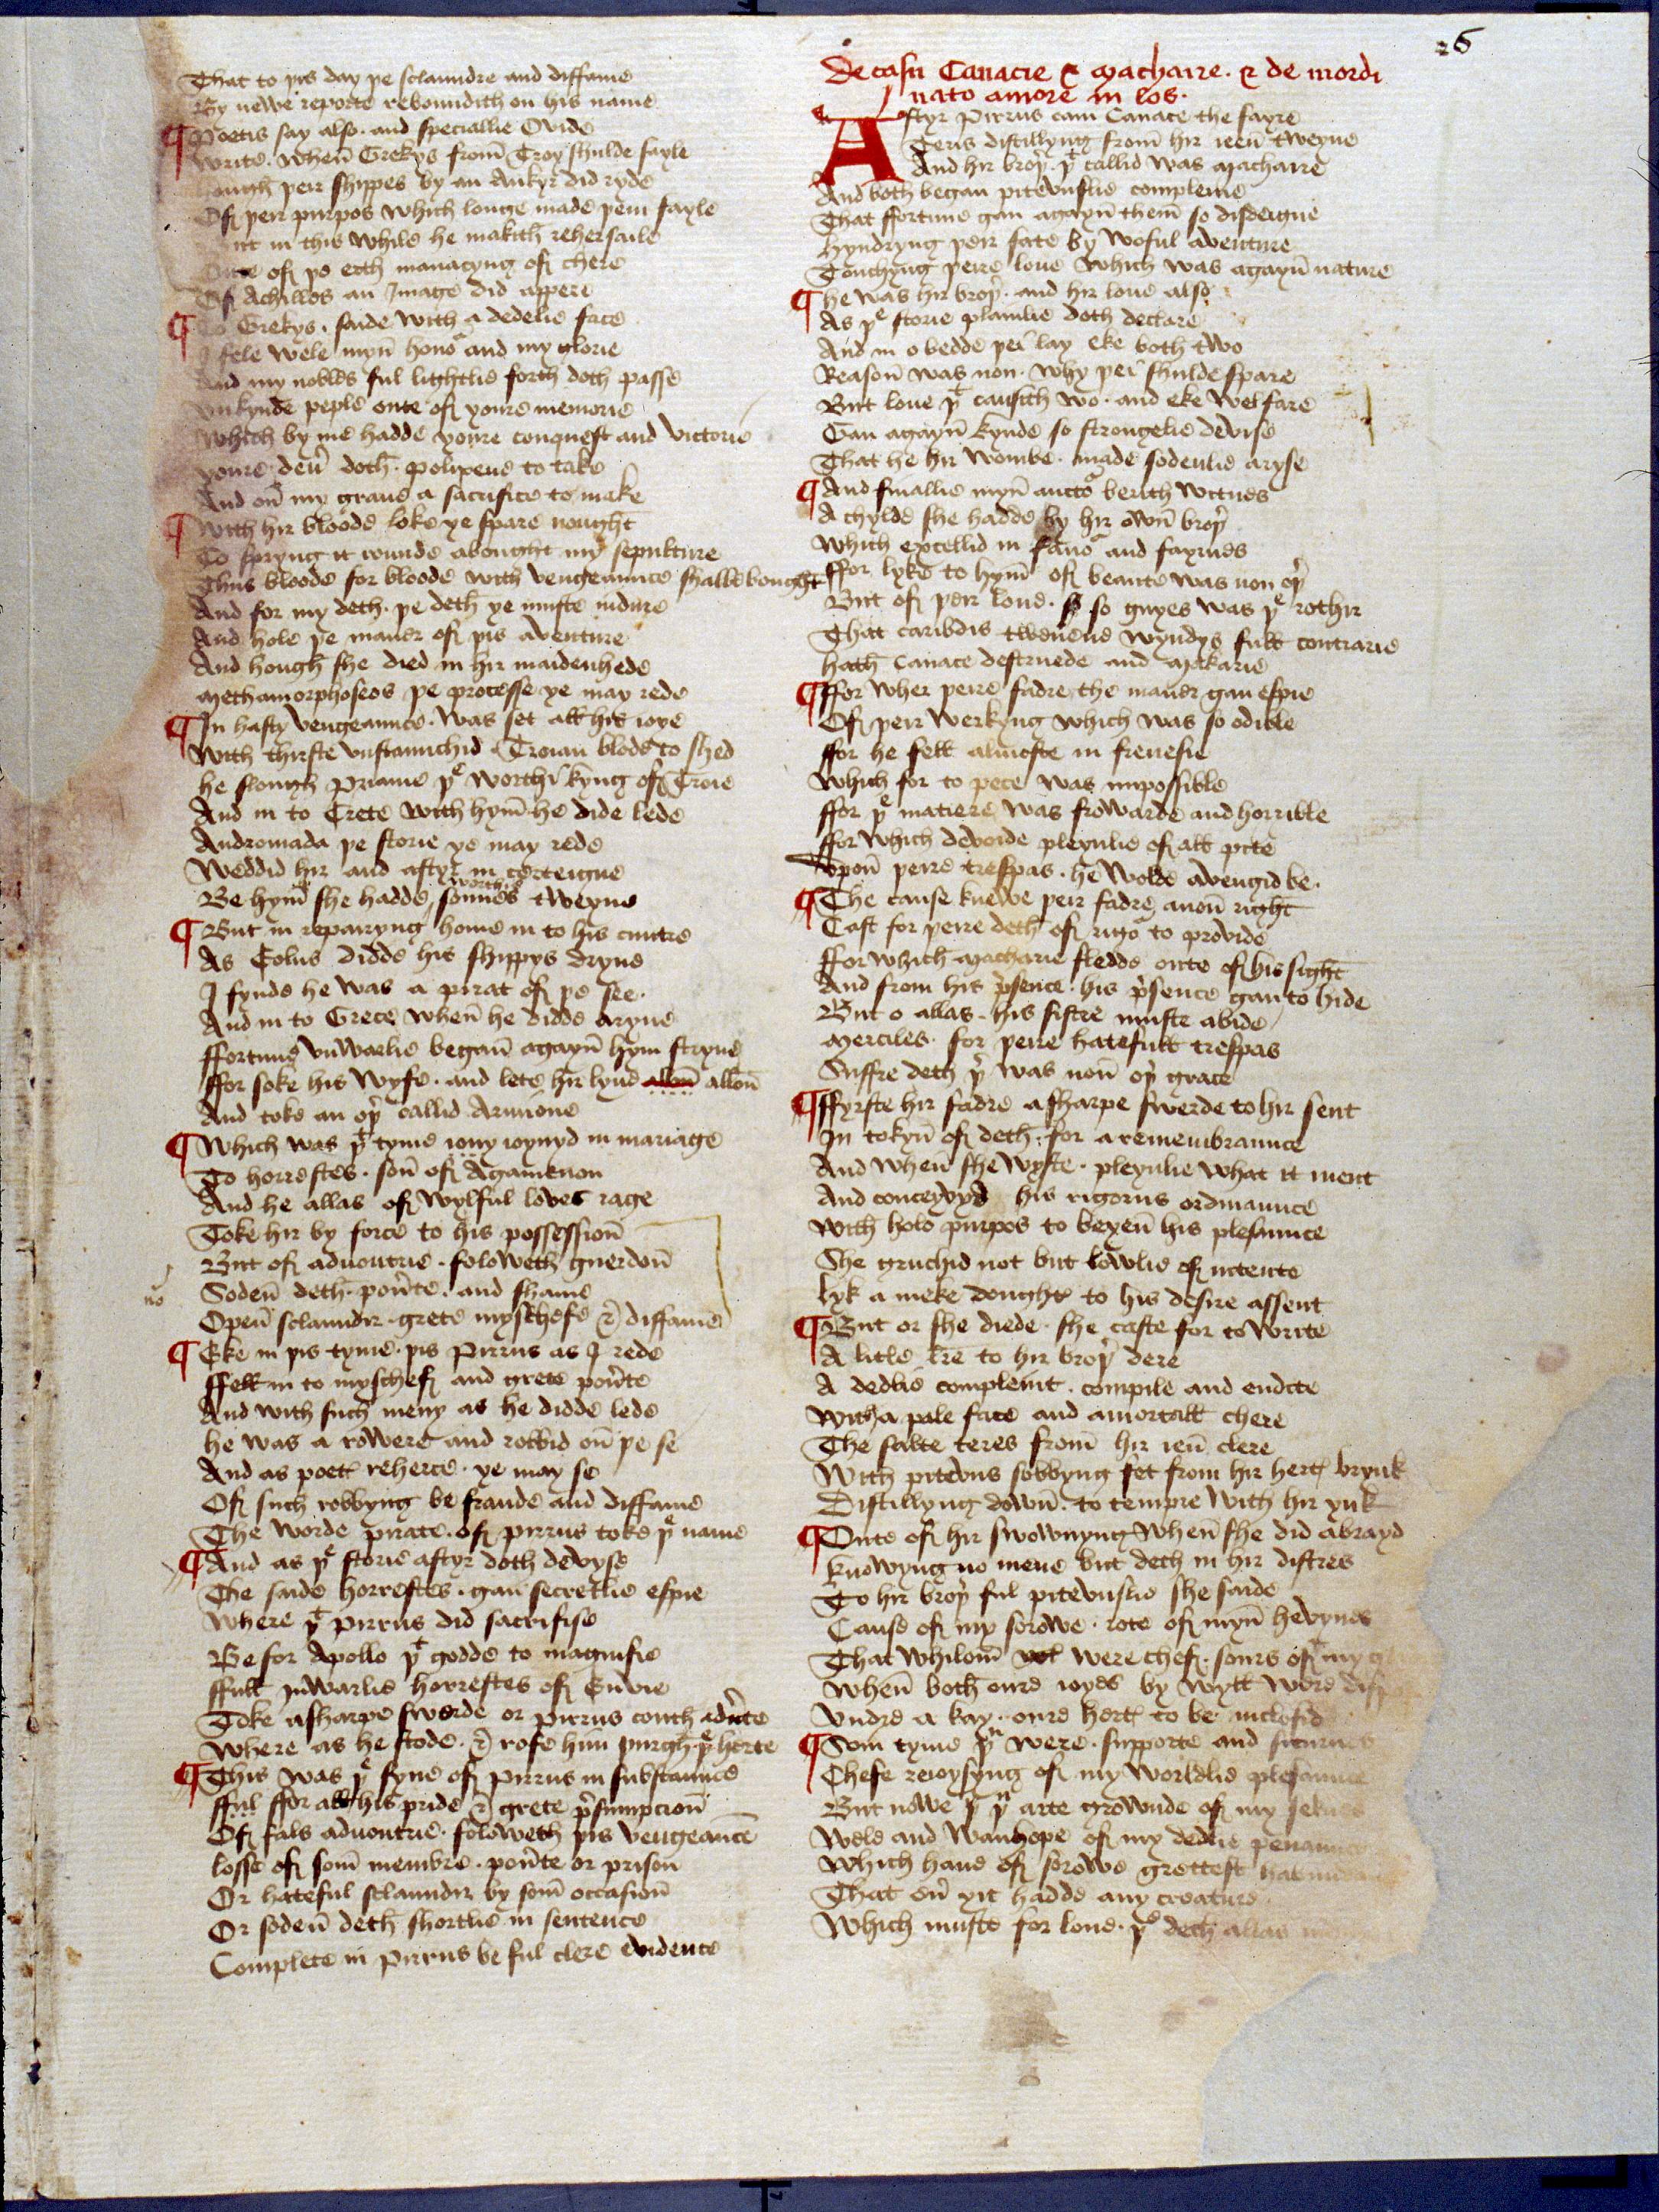 26
That to þis day þe sclaundre and diffame
By newe reporte reboundith on his name
¶ Poetis say also · and speciallie Ovide
Write · When̄ Grekys from̄ Troy shulde sayle
ough þeir shippes by an Ankyr did ryde
Of þeir purpos which longe made þem fayle
ut in this while he makith rehersaile
Oute of þe erth manacyng of chere
Of Achilles an Image did appere
¶ To Grekys · saide with a dedelie face
I fele wele myn̄ honor and my glorie
And my nobles ful lightlie forth doth passe
Unkynde peple oute of youre memorie
Which by me hadde youre conquest and victorie
youre deū doth · Polixene to take
And on̄ my grave a sacrifice to make
¶ With hir bloode loke ye spare nought
To spryng it rounde abought my sepulture
Thus bloode for bloode with vengeaunce shalbe bought
And for my deth · þe deth ye muste indure
And hole þe maner of þis aventure
And hough she died in hir maidenhede
Methamorphoseos þe processe ye may rede
¶ In hasty vengeaunce · was set all his ioye
With thirste unstaunchid Troian blode to shed
he slough Priame þe worthi kyng of Troie
And in to Crete with hym̄ he dide lede
Andromada þe storie ye may rede
Weddid hir and aftyr in certeigne
Be hym̄ she hadde worthie sonnes tweyne
¶ But in repairyng home in to his cuntre
As Eolus didde his shippys dryve
I fynde he was a pirat of þe see ·
And in to Grece when̄ he didde aryve
ffortune unwarlie began̄ agayn̄ hym stryve
ffor soke his wyfe · and lete hir lyve allon̄ allon̄
And toke an oþr callid Armione
¶ Which was þt tyme iony ioynyd in mariage
To horrestes · son̄ of Agamenon
And he allas of wylful loves rage
Toke hir by force to his possession̄
But of advoutrie · foloweth guerdon̄
no Soden̄ deth · pov̄te · and shame
Open̄ sclaundir · grete myschefe & diffame
¶ Eke in þis tyme · þis Pirrus as I rede
ffell in to myschef and grete pov̄te
And with such meny as he didde lede
he was a rowere and robbid on̄ þe se
And as poet reherce · ye may se
Of such robbyng be fraude and diffame
The worde pirate · of pirrus toke þe name
¶ And as þe storie aftyr doth devyse
The saide horrestes · gan̄ secretlie espie
Where þt Pirrus did sacrifise
Be for Apollo þt godde to magnifie
ffull Inwarlie horrestes of Envie
Toke a sharpe swerde or pirrus couth adv̄te
Where as he stode · & rofe him þurgh þe herte
¶ This was þe fyne of pirrus in substaunce
fful ffor all his pride & grete pr̄sumpcion̄
Of fals advoutrie · foloweth þis vengeance
losse of som̄ membre · pov̄te or prison
Or hateful sclaundir by som̄ occasion̄
Or soden̄ deth shortlie in sentence
Complete in pirrus be ful clere evidence
De casu Canacie & Machaire · & de inordi
nato amore in los ·
Aftyr Pirrus cam Canace the fayre
Teris distillyng from̄ hir ieen̄ tweyne
And hir broþr · þt callid was Machaire
And both began piteuuslie compleine
That ffortune gan agayn̄ them̄ so disdeigne
hyndryng þeir fate by woful aventure
Touchyng þeire love which was agayn̄ nature
¶ he was hir broþr · and hir love also
As þe storie plainlie doth declare
And in o bedde þei lay eke both two
Reason̄ was non · why þei shulde spare
But love þt causith wo · and eke welfare
Gan agayn̄ kynde so strongelie devise
That he hir wombe · made sodenlie aryse
¶ And finallie myn̄ auctor berith witnes
A chylde she hadde by hir own̄ broþr
Which excellid in favor and fayrnes
ffor lyke to hym̄ of beaute was non oþr
But of þeir love · so guyes was þe rothir
That caribdis twenene wyndys full contrarie
hath Canace destruede and Makarie
¶ ffor wher þeire fadre the maner gan espie
Of þeir werkyng which was so odible
ffor he fell almoste in frenesie
Which for to pece was impossible
ffor þe matiere was frowarde and horrible
ffor which devoide pleynlie of all pite
Upon̄ þeire trespas · he wolde avengid be ·
¶ The cause knewe þeir fadre anon̄ right
Cast for þeire deth of rigor to provide
ffor which Macharie fledde oute of his sight
And from his pr̄sence · his pr̄sence gan to hide
But o allas · his sistre muste abide
Merciles · for þeire hatefull trespas
Suffre deth þr was non̄ oþr grace
¶ ffyrste hir fadre a sharpe swerde to hir sent
In tokyn̄ of deth · for a remembraunce
And when̄ she wyste · pleynlie what it ment
And conceyvyd his rigorus ordinaunce
With hole purpos to beyen̄ his plesaunce
She gruchid not but lowlie of intente
lyk a meke dought to his desire assent
¶ But or she diede · she caste for to write
A litle lr̄e to hir broþr dere
A dedlie compleint · compile and endite
With a pale face and a mortall chere
The salte teres from̄ hir ien̄ clere
With piteuus sobbyng fet from hir hert brynk
Distillyng down̄ · to tempre with hir ynk
¶ Oute of hir swownyng when̄ she did abrayd
knowyng no mene but deth in hir distres
To hir broþr ful piteuuslie she saide
Cause of my sorowe · rote of myn̄ hevynes
That whilom̄ were chef · sours of my
When̄ both oure ioyes by wyll were
Undre a kay · oure hert to be inclosid
¶ Som tyme þu were · supporte and sicurnes
Chefe reioysyng of my worldlie plesaunce
But nowe þu arte grownde of my seknes
Wele and wanhope of my dedlie penaunce
Which have of sorowe grettest habundaunce
That ev̄ yit hadde any creature
Which muste for love · þe deth allas